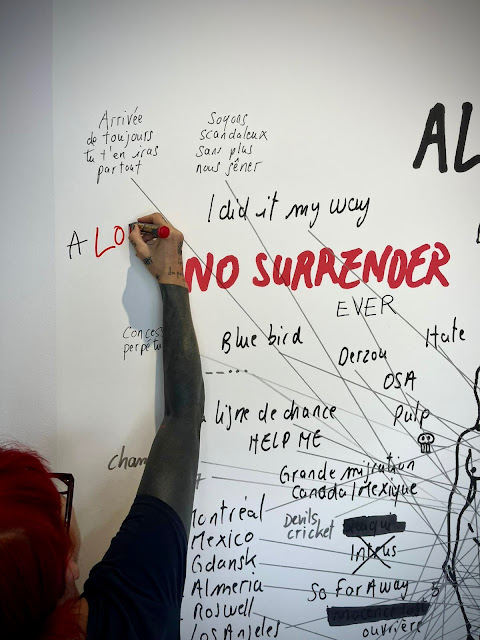 Arrivée
de toujours
tu t'en iras
partout
Soyons
scandaleux
sans plus
nous gêner
AL
I did it my way
A LO
NO SURRENDER
EVER
Concess
perpétu
Blue bird
Hate
Derzou
OSA
ligne de chance
Pulp
HELP ME
Cham
Grande migration
Canada/Mexique
Montréal
Devils
cricket
Mexico
Intrus
Gdansk
Almeria
So Far Away
Roswell
Los Angeles
ouvrière